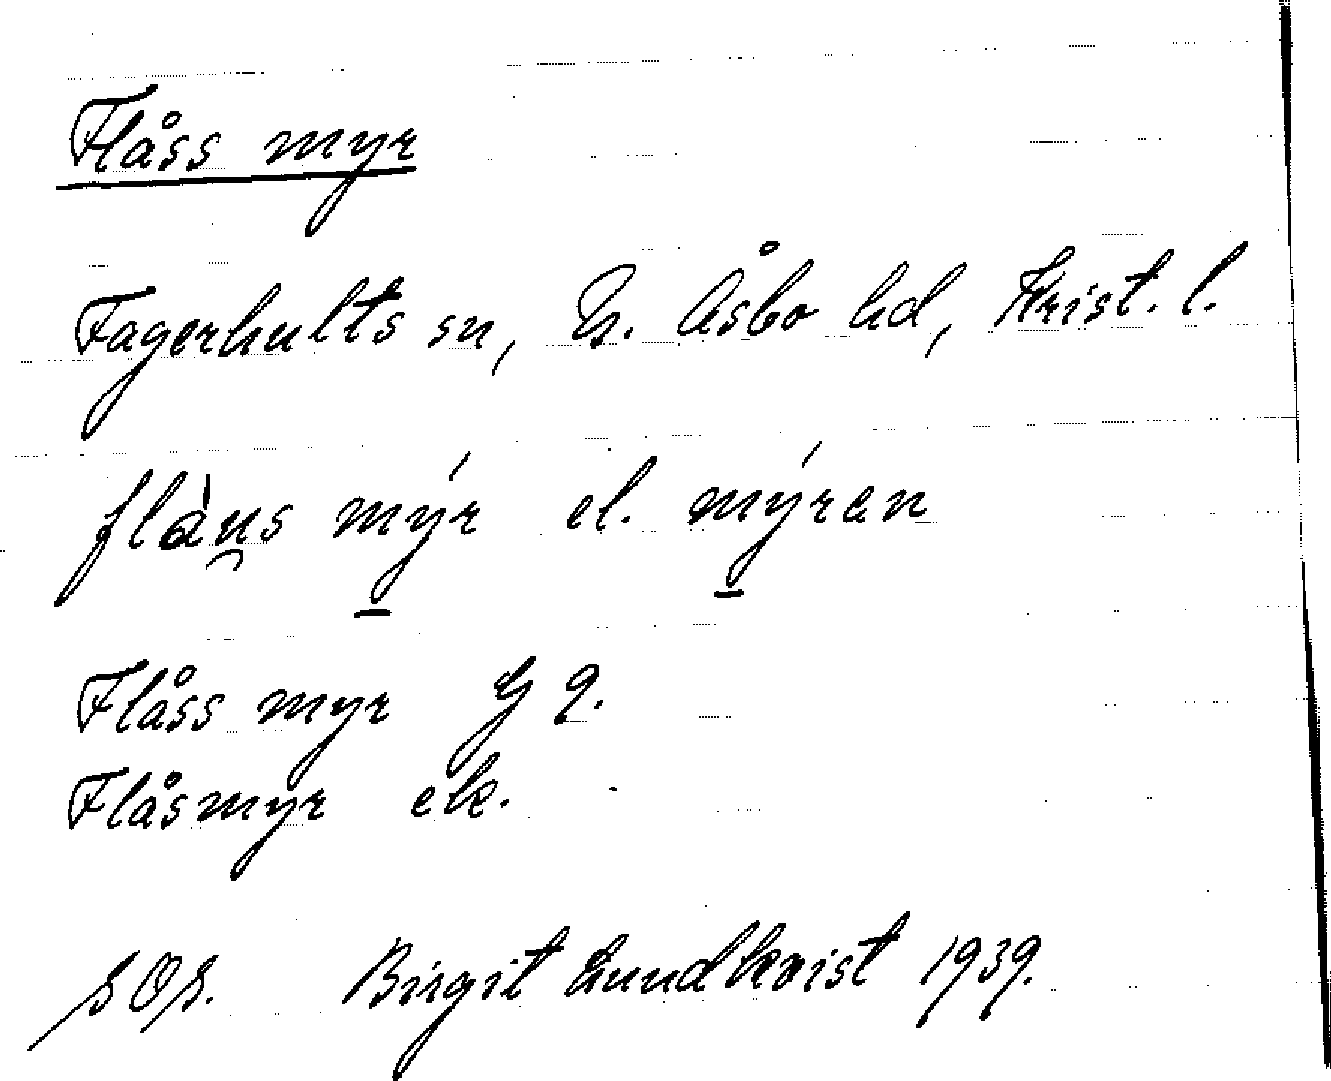 Flåss myr
Fagerhults sn, N. Åsbo hd, Krist. l.
flàu̯s mýr el. mýran
Flåss myr G 2.
Flåsmyr ek.
SOS. Birgit Lundkvist 1939.